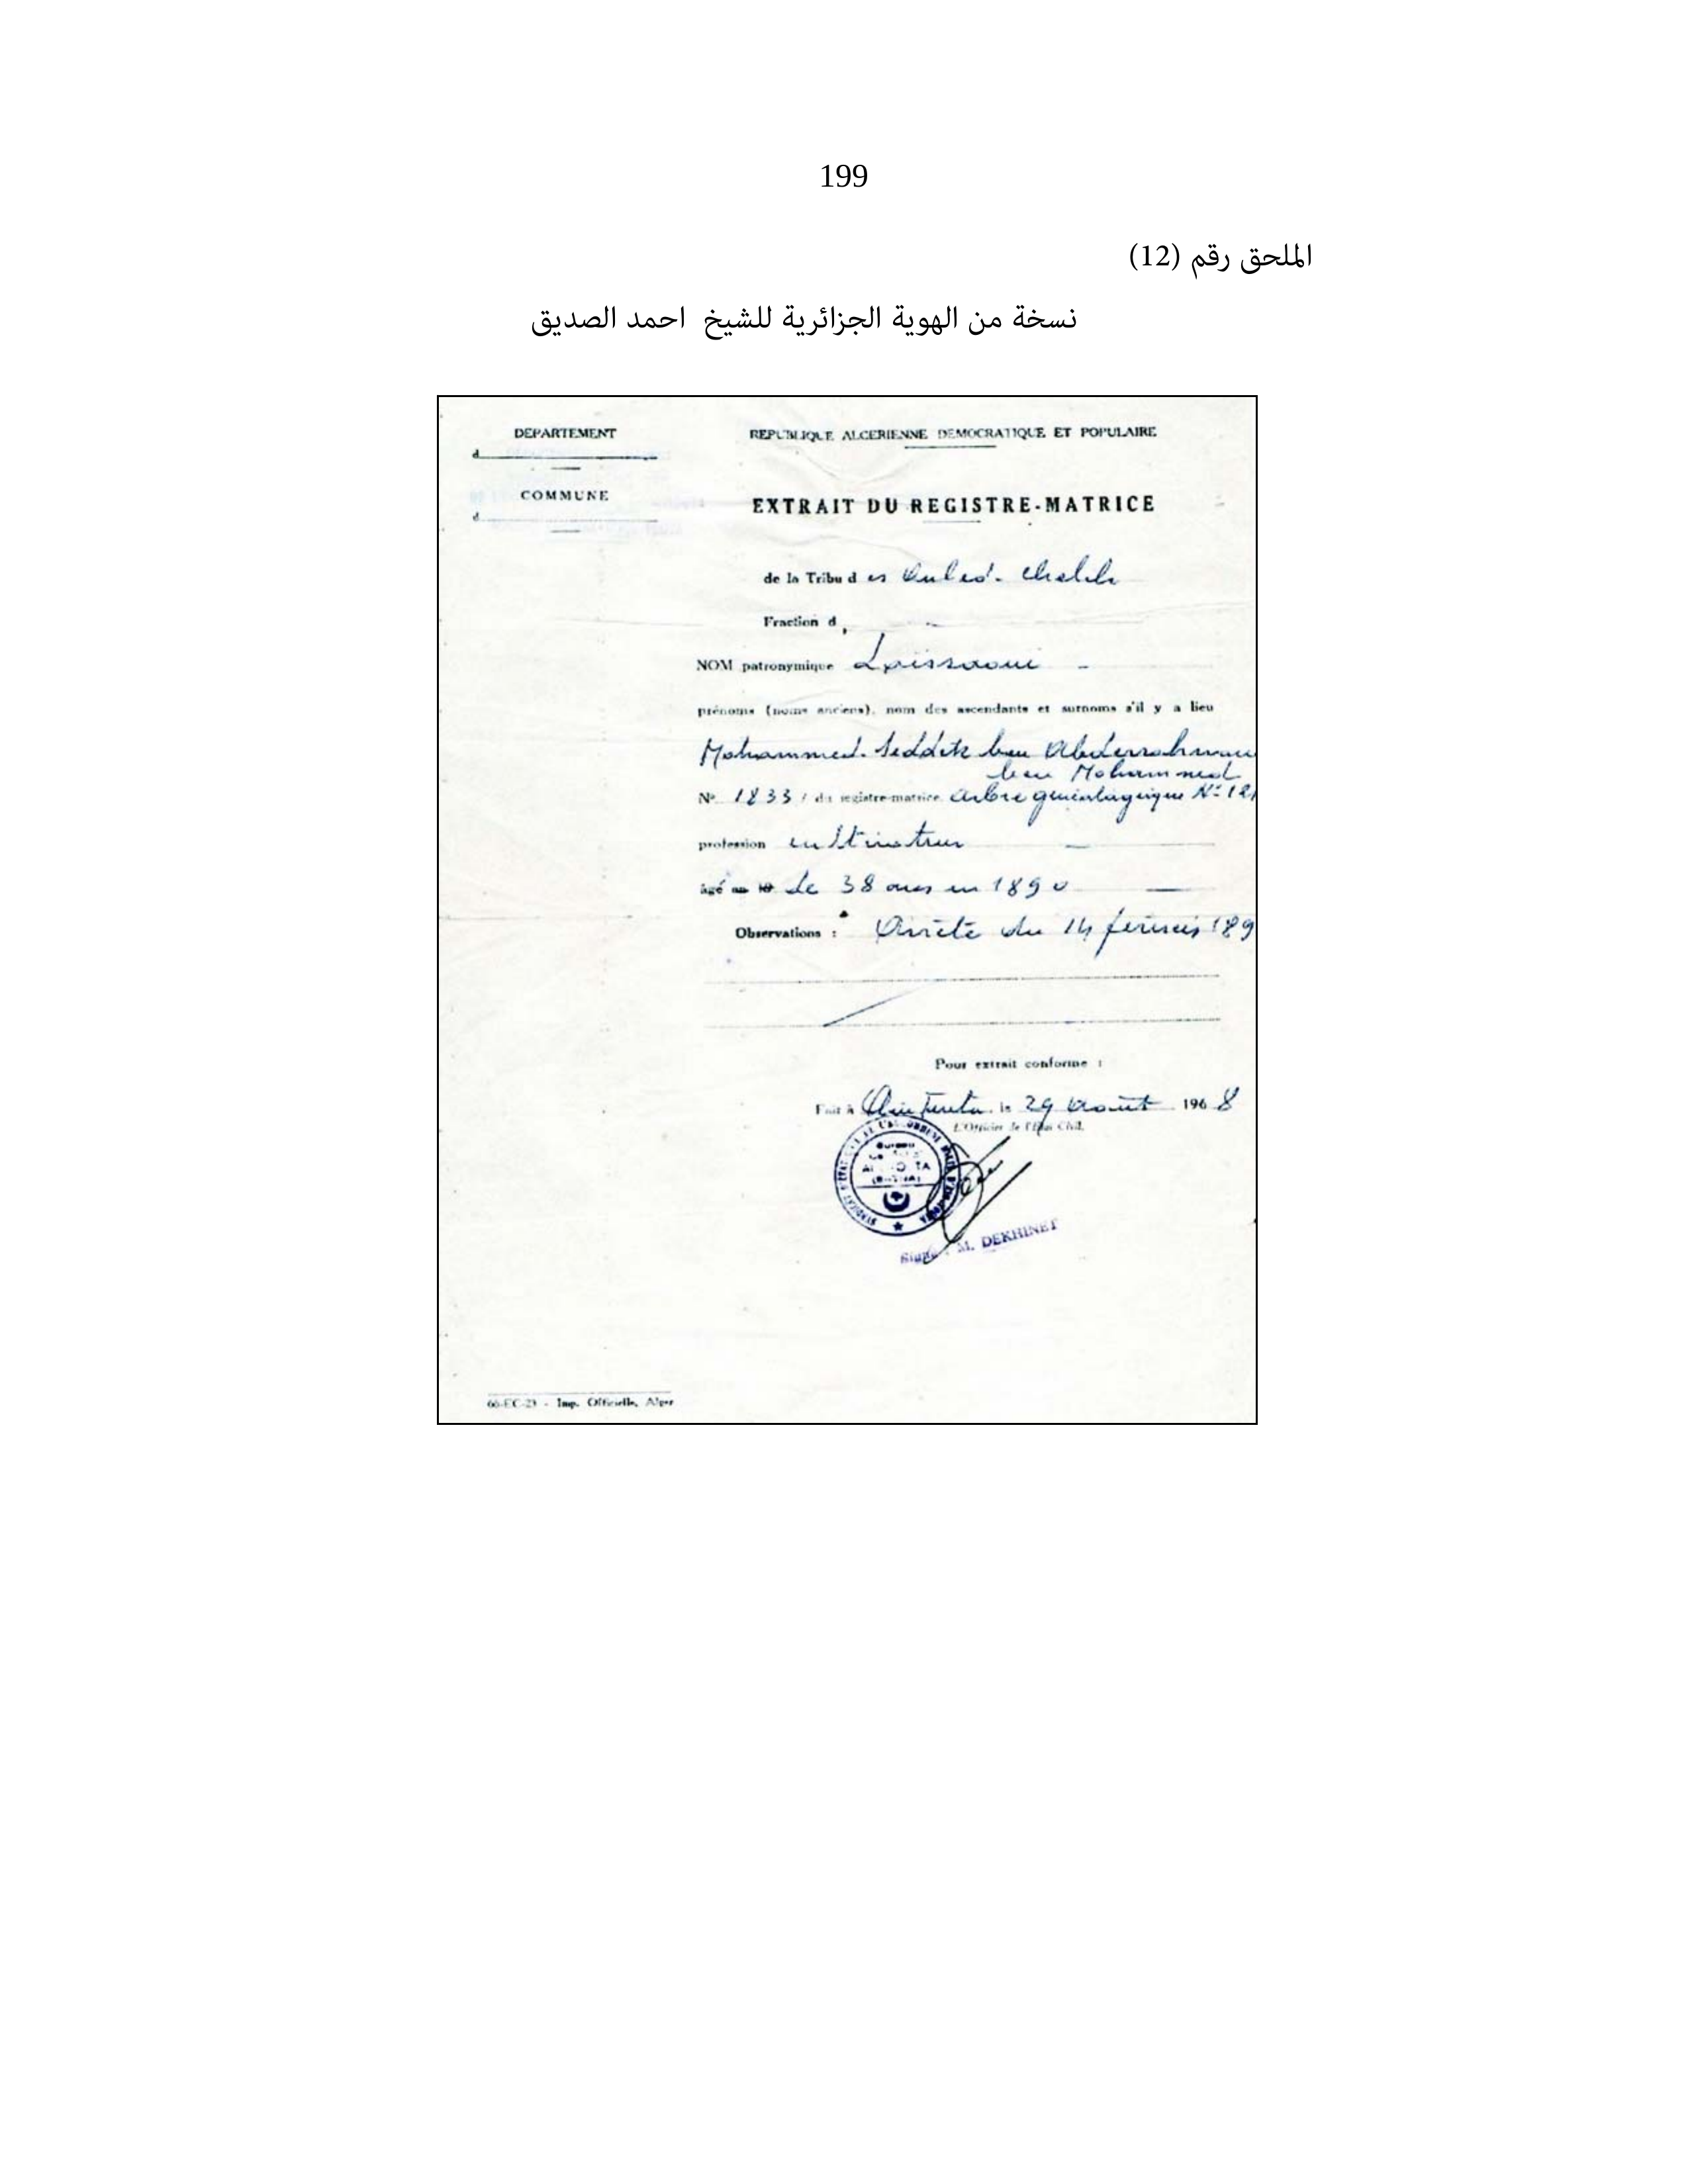 199
الملحق رقم (12)
نسخة من الهوية الجزائرية للشيخ احمد الصديق
DEPARTEMENT
d
COMMUNE
d
REPUBLIQUE ALGERIENNE DEMOCRATIQUE ET POPULAIRE
EXTRAIT DU REGISTRE-MATRICE
de la Tribu des Ouled. Chelih
Fraction d
NOM patronymique Laïssaoui -
prénoms (noms anciens), nom des ascendants et surnoms s'il y a lieu
Mohammed. Seddik ben Abderrahmane
ben Mohammed
Nº 1833 / du registre-matrice. Arbre généalogique Nº 121
profession cultivateur
âgé de 38 ans en 1890
Observations : Arrêté du 14 février 189
Pour extrait conforme :
Fait à Ain Touta, le 29 Août 1968
L'Officier de l'Etat Civil,
Bureau
Signé : M. DEKHINET
66-EC-23 - Imp. Officielle, Alger